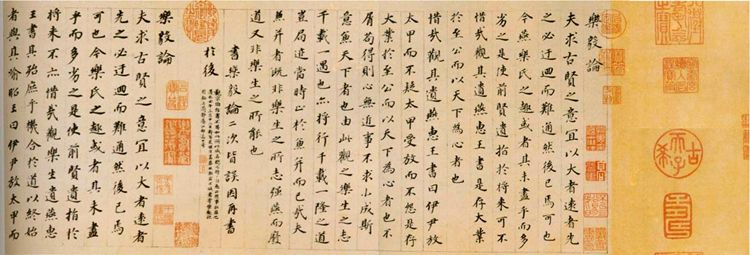 樂毅論
夫求古賢之意宜以大者遠者先
之必迂迴而難通然後已焉可也
今燕樂氏之趣或者其未盡乎而多
劣之是使前賢遺指於將來可不
惜哉觀其遺燕惠王書是存大業
於至公而以天下為心者也
惜哉觀其遺燕惠王書曰伊尹放
太甲而不疑太甲受放而不怨是存
大業於至公而以天下為心者也不
屑苟得則心無近事不求小成斯
意兼天下者也由此觀之樂生之志
千載一遇也亦將行千載一隆之道
豈局迹當時止於兼并而已哉夫
兼并者既非樂生之所志彊燕而廢
道又非樂生之所能也
書樂毅論二次皆誤因再書
於後
樂毅論
夫求古賢之意宜以大者遠者
先之必迂迴而難通然後已焉
可也今樂氏之趣或者其未盡
乎而多劣之是使前賢遺指於
將來不亦惜哉觀樂生遺燕惠
王書其殆庶乎機合於道以終始
者與其喻昭王曰伊尹放太甲而
古希天子